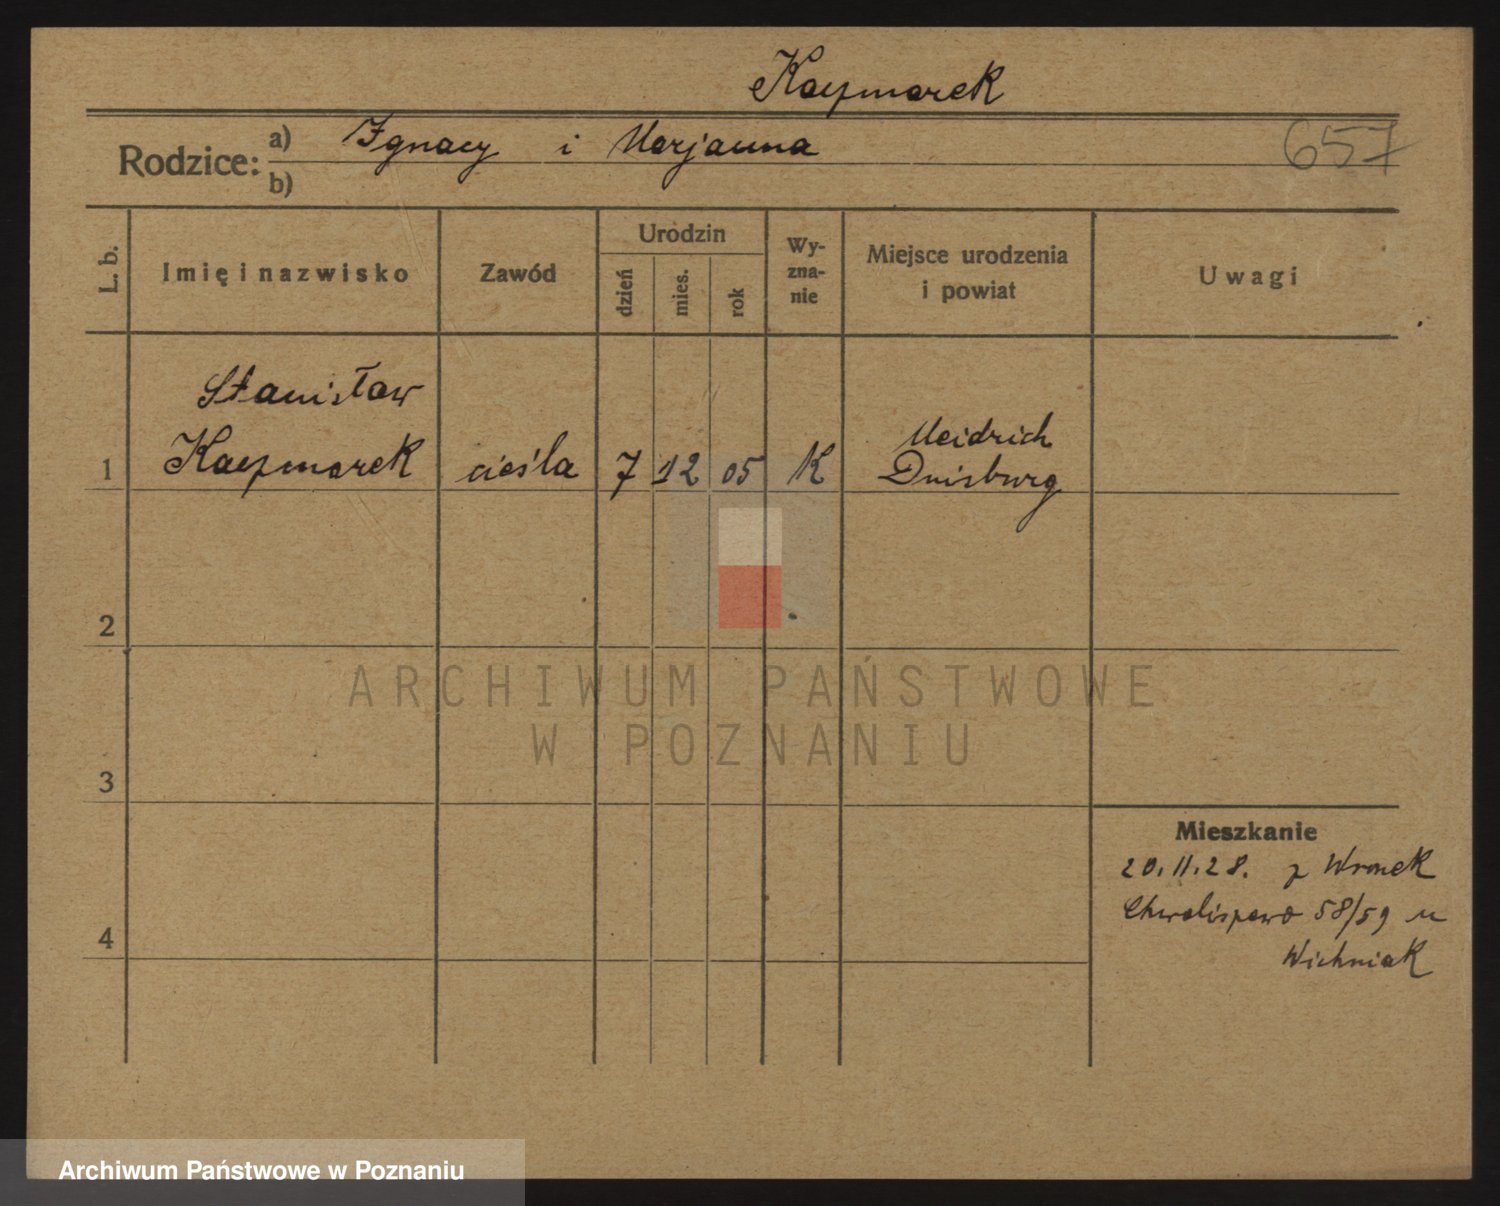 Kaczmarek
Rodzice: a) Ignacy i Marjanna
b)
657
L. b.
Imię i nazwisko
Zawód
Urodzin
dzień
mies.
rok
Wy-
zna-
nie
Miejsce urodzenia
i powiat
Uwagi
Stanisław
1 Kaczmarek cieśla 7 12 05 K Meidrich
Duisburg
2
ARCHIWUM PAŃSTWOWE
W POZNANIU
3
Mieszkanie
20.11.28. z Wronek
Chwaliszewo 58/59 u
Wichniak
4
Archiwum Państwowe w Poznaniu